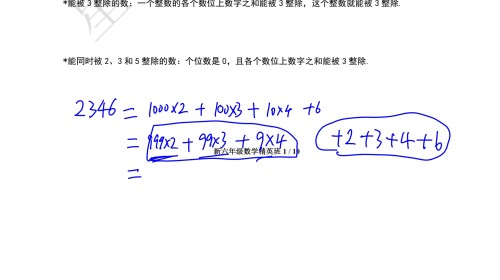 *能被 3 整除的数：一个整数的各个数位上数字之和能被 3 整除，这个整数就能被 3 整除.
*能同时被 2、3 和 5 整除的数：个位数是 0，且各个数位上数字之和能被 3 整除.
2346 = 1000×2 + 100×3 + 10×4 + 6
= 999×2 + 99×3 + 9×4 +2+3+4+6
新六年级数学精英班 1 / 10
=